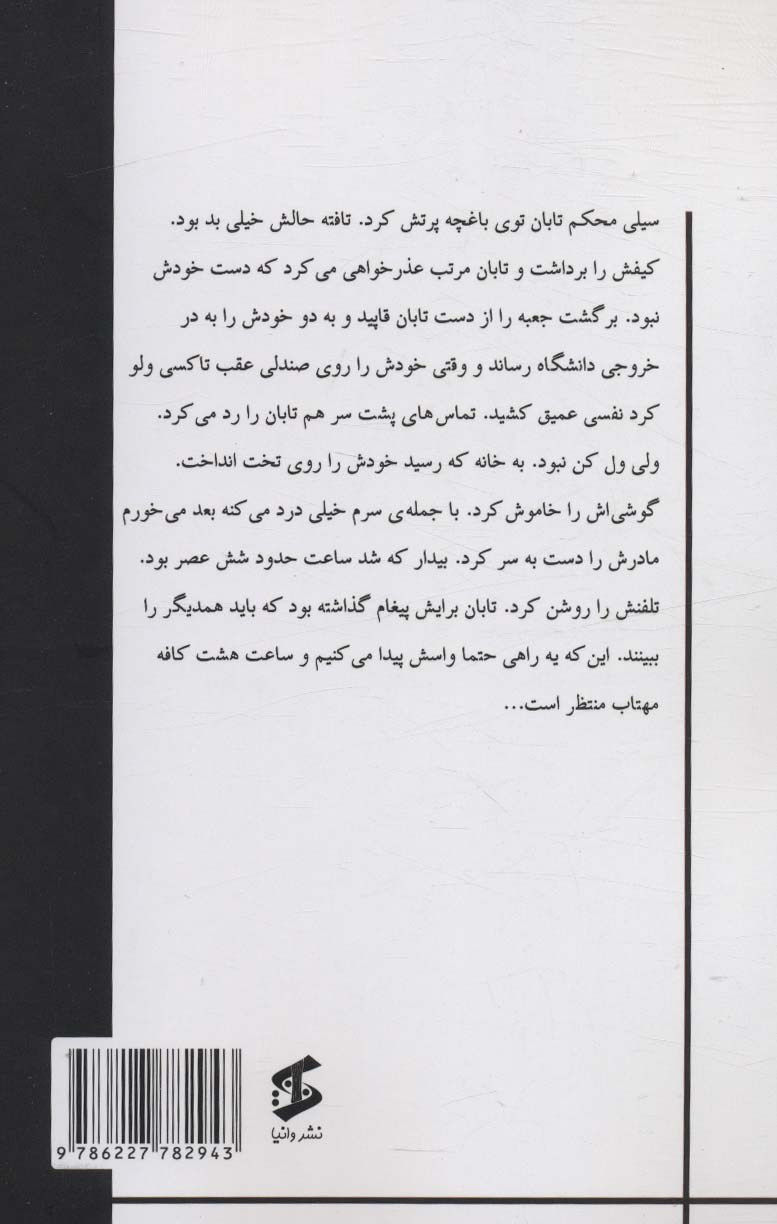 سیلی محکم تابان توی باغچه پرتش کرد. تافته حالش خیلی بد بود.
کیفش را برداشت و تابان مرتب عذرخواهی می‌کرد که دست خودش
نبود. برگشت جعبه را از دست تابان قاپید و به دو خودش را به در
خروجی دانشگاه رساند و وقتی خودش را روی صندلی عقب تاکسی ولو
کرد نفسی عمیق کشید. تماس‌های پشت سر هم تابان را رد می‌کرد.
ولی ول کن نبود. به خانه که رسید خودش را روی تخت انداخت.
گوشی‌اش را خاموش کرد. با جمله‌ی سرم خیلی درد می‌کنه بعد می‌خورم
مادرش را دست به سر کرد. بیدار که شد ساعت حدود شش عصر بود.
تلفنش را روشن کرد. تابان برایش پیغام گذاشته بود که باید همدیگر را
ببینند. این‌که یه راهی حتما واسش پیدا می‌کنیم و ساعت هشت کافه
مهتاب منتظر است...
نشر وانیا
9 786227 782943